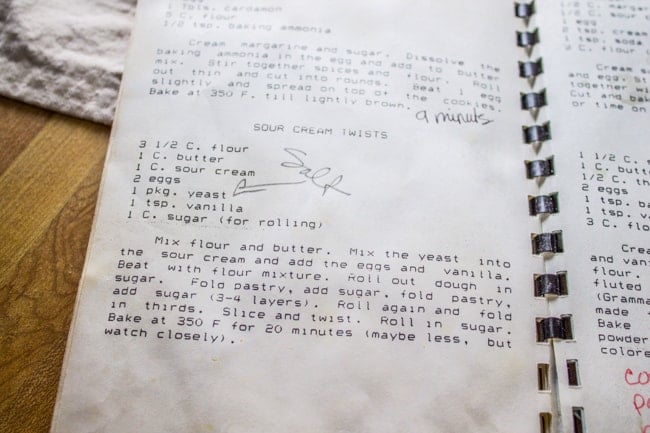 1 Tbls. cardamon
5 C. flour
1/2 tsp. baking ammonia
Cream margarine and sugar. Dissolve the
baking ammonia in the egg and add to butter
mix. Stir together spices and flour. Roll
out thin and cut into rounds. Beat 1 egg
slightly and spread on top of the cookies.
Bake at 350 F. till lightly brown. 9 minuts
SOUR CREAM TWISTS
3 1/2 C. flour
1 C. butter
1 C. sour cream
2 eggs
1 pkg. yeast
Salt
1 tsp. vanilla
1 C. sugar (for rolling)
Mix flour and butter. Mix the yeast into
the sour cream and add the eggs and vanilla.
Beat with flour mixture. Roll out dough in
sugar. Fold pastry, add sugar, fold pastry,
add sugar (3-4 layers). Roll again and fold
in thirds. Slice and twist. Roll in sugar.
Bake at 350 F for 20 minutes (maybe less, but
watch closely).
1/2 C. sour
1 egg
2 tsp. cream
1 tsp. soda
3 C. flour
Cream
and egg.
together
Cut and
or time on
1 1/2 C.
1 C.
1/2 C.
2 eggs
1 tsp.
1 tsp.
3 C. flour
and
flour.
fluted
made
Bake
powder